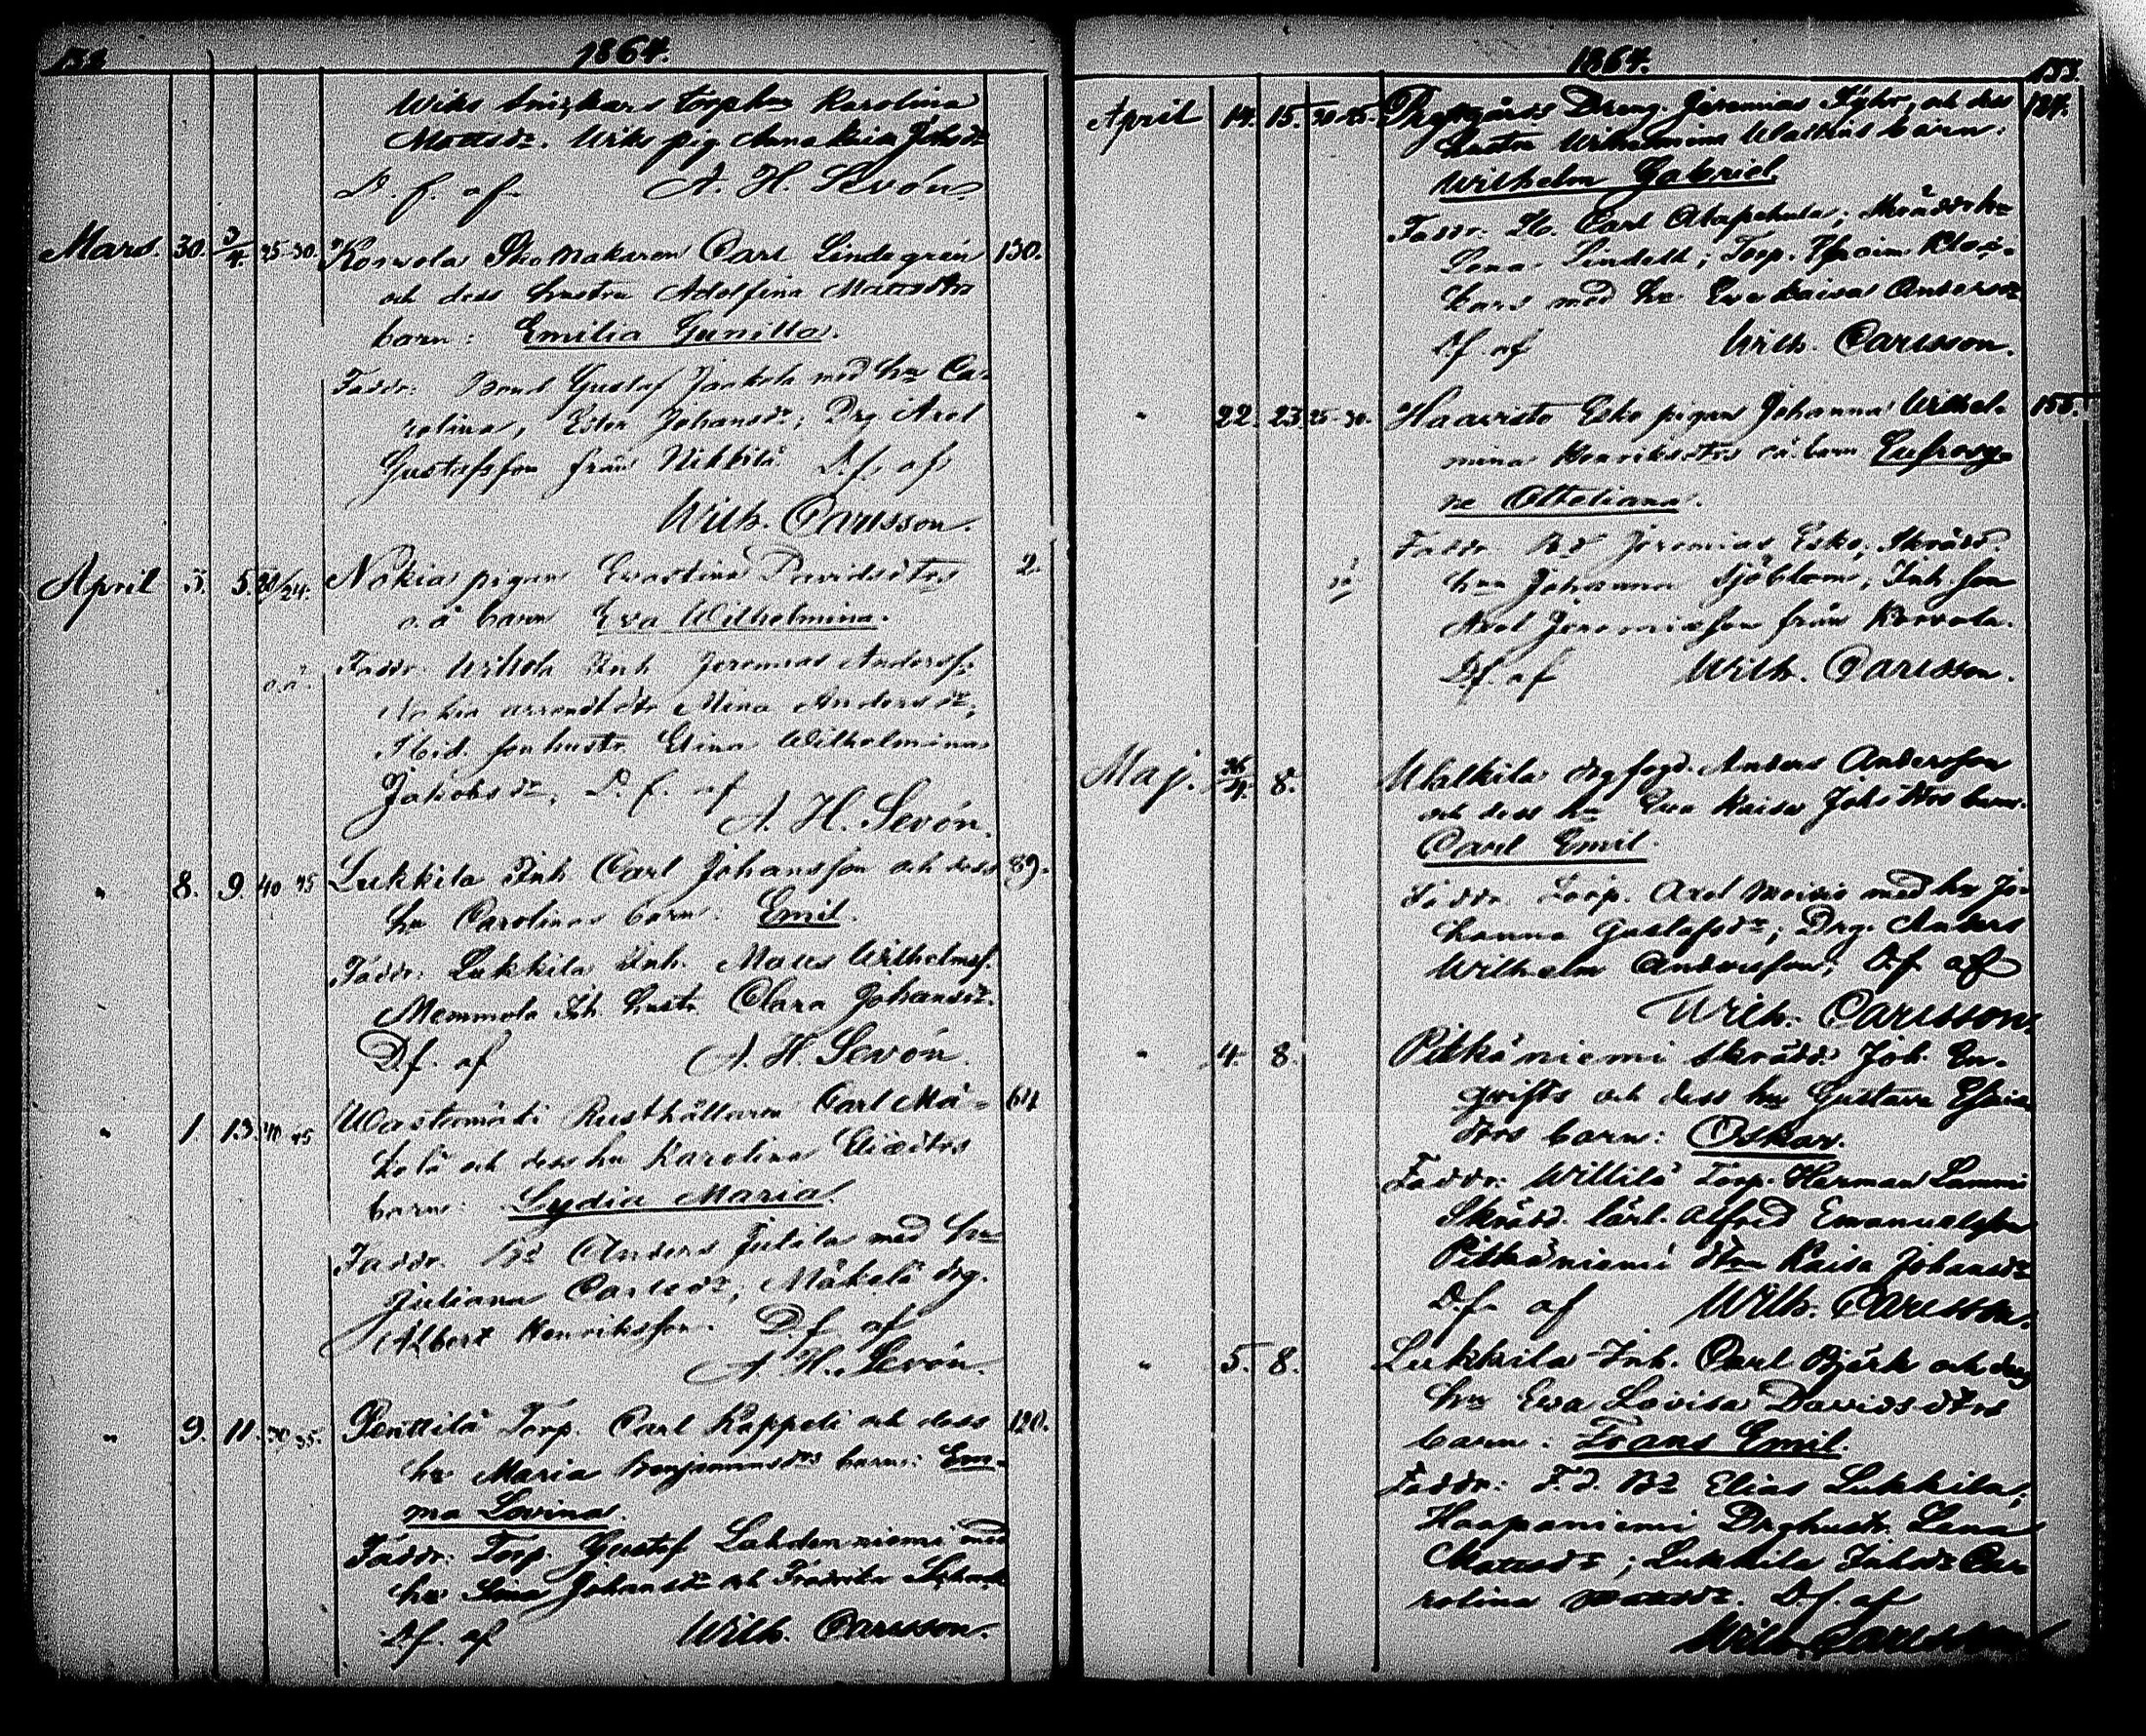 132
1864.
Wiks Snickars torphu Karolina
Mattsdr. Wiks pig. Anna Kaisa Johsdr
D. f. af A. H. Sevón.
Mars. 30. 3/4. 25-30. Korvola Skomakaren Carl Lindegrén 130.
och dess hustru Adolfina Mattsdtrs
barn: Emilia Gunilla.
Faddr: Bond Gustaf Jaakola med hu Ca-
rolina, Ester Johansdr; Drg Axel
Gustafsson från Nikkilä. D.f. af
Wilh. Carlsson.
April 3. 5. 20/24. Nokia pigan Evastina Davidsdtrs 2.
o.ä barn Eva Wilhelmina.
o.ä. Faddr. Inh Jeremias Andersf:
Nokia Mina Andersdr,
Ibid. sonhustr. Elina Wilhelmina
Jakobsdr, D. f. af
A. H. Sevón.
" 8. 9. 40 45 Lukkila Inh Carl Johansson och dess 89.
hu Carolinas barn: Emil.
Faddr: Lukkila Inh. Matts Wilhelmsf.
Memmola Inh. hustr. Clara Johansdr.
D.f. af A. H. Sevón.
" 1. 13. 40 45 Wastamäki Rusthållaren Carl Mä- 64
kelä och dess hu Karolina Eliædtrs
barn: Lydia Maria.
Faddr. Bd Anders Jutila med hu
Juliana Carlsdr, Mäkelä drg.
Albert Henriksson. D.f. af
A. H. Sevón.
" 9. 11. 30 35. Penttilä Torp. Carl Käppeli och dess 120.
hu Maria Benjaminsdrs barn: Em-
ma Lovina.
Faddr: Torp. Gustaf Lahdenniemi med
hu Lena Johansdr och Fredrika
D.f. af Wilh. Carlsson.
1864. 133.
April 14. 15. 20-25. Prestgårds Dreng. Jeremias och dess 124.
hustru Wilhelmina barn:
Wilhelm Gabriel.
Faddr. Carl Ahapehula; Skräddrhu
Lena Lindell; Torp.
kars med hu Eva Kaisa Andersdr
D.f. af Wilh. Carlsson.
" 22. 23. 25-30. Haavisto Esko pigan Johanna Wilhel- 155.
mina Henriksdtrs o.ä. barn Eufrosy-
ne Otteliana.
o.ä Faddr. Bd Jeremias Esko, Skrädd.
hu Johanna Sjöblom, Inh. son
Axel Jeremiasson från Korvola.
D.f. af Wilh. Carlsson.
Maj. 26/4. 8. Ulakila drg Anders Andersson
och dess hu Eva Kaisa Johsdtrs barn.
Carl Emil.
Faddr. Torp. Axel Moisio med hu Jo-
hanna Gustafsdr; Drg. Anders
Wilhelm Andersson; D.f. af
Wilh. Carlsson.
" 4. 8. Pitkäniemi skrädd. Joh. En-
qvists och dess hu Gustava Esaia-
dtrs barn: Oskar.
Faddr: Willilä Torp. Herman Lammi
Skrädd. lärl. Alfred Emanuelsson
Pitkäniemi dtrn Kaisa Johansdr
D.f. af Wilh. Carlsson.
" 5. 8. Lukkila Inh. Carl Björk och dess
hu Eva Lovisa Davidsdtrs
barn: Frans Emil.
Faddr: F.d. Bd Elias Lukkila;
Haapaniemi Drghustr. Lena
Mattsdr; Lukkila Inhdr Ca-
rolina Mattsdr. D.f. af
Wilh. Carlsson